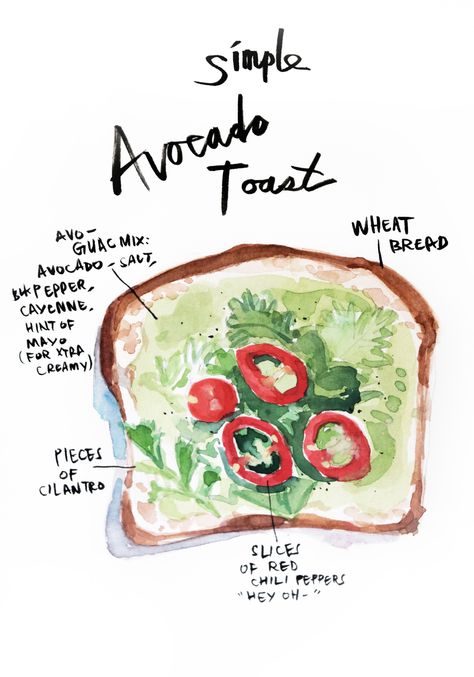 Simple
Avocado
Toast
WHEAT
BREAD
AVO-
GUAC MIX:
AVOCADO - SALT,
BLK PEPPER,
CAYENNE,
HINT OF
MAYO
(FOR XTRA
CREAMY)
PIECES
OF
CILANTRO
SLICES
OF RED
CHILI PEPPERS
"HEY OH-"